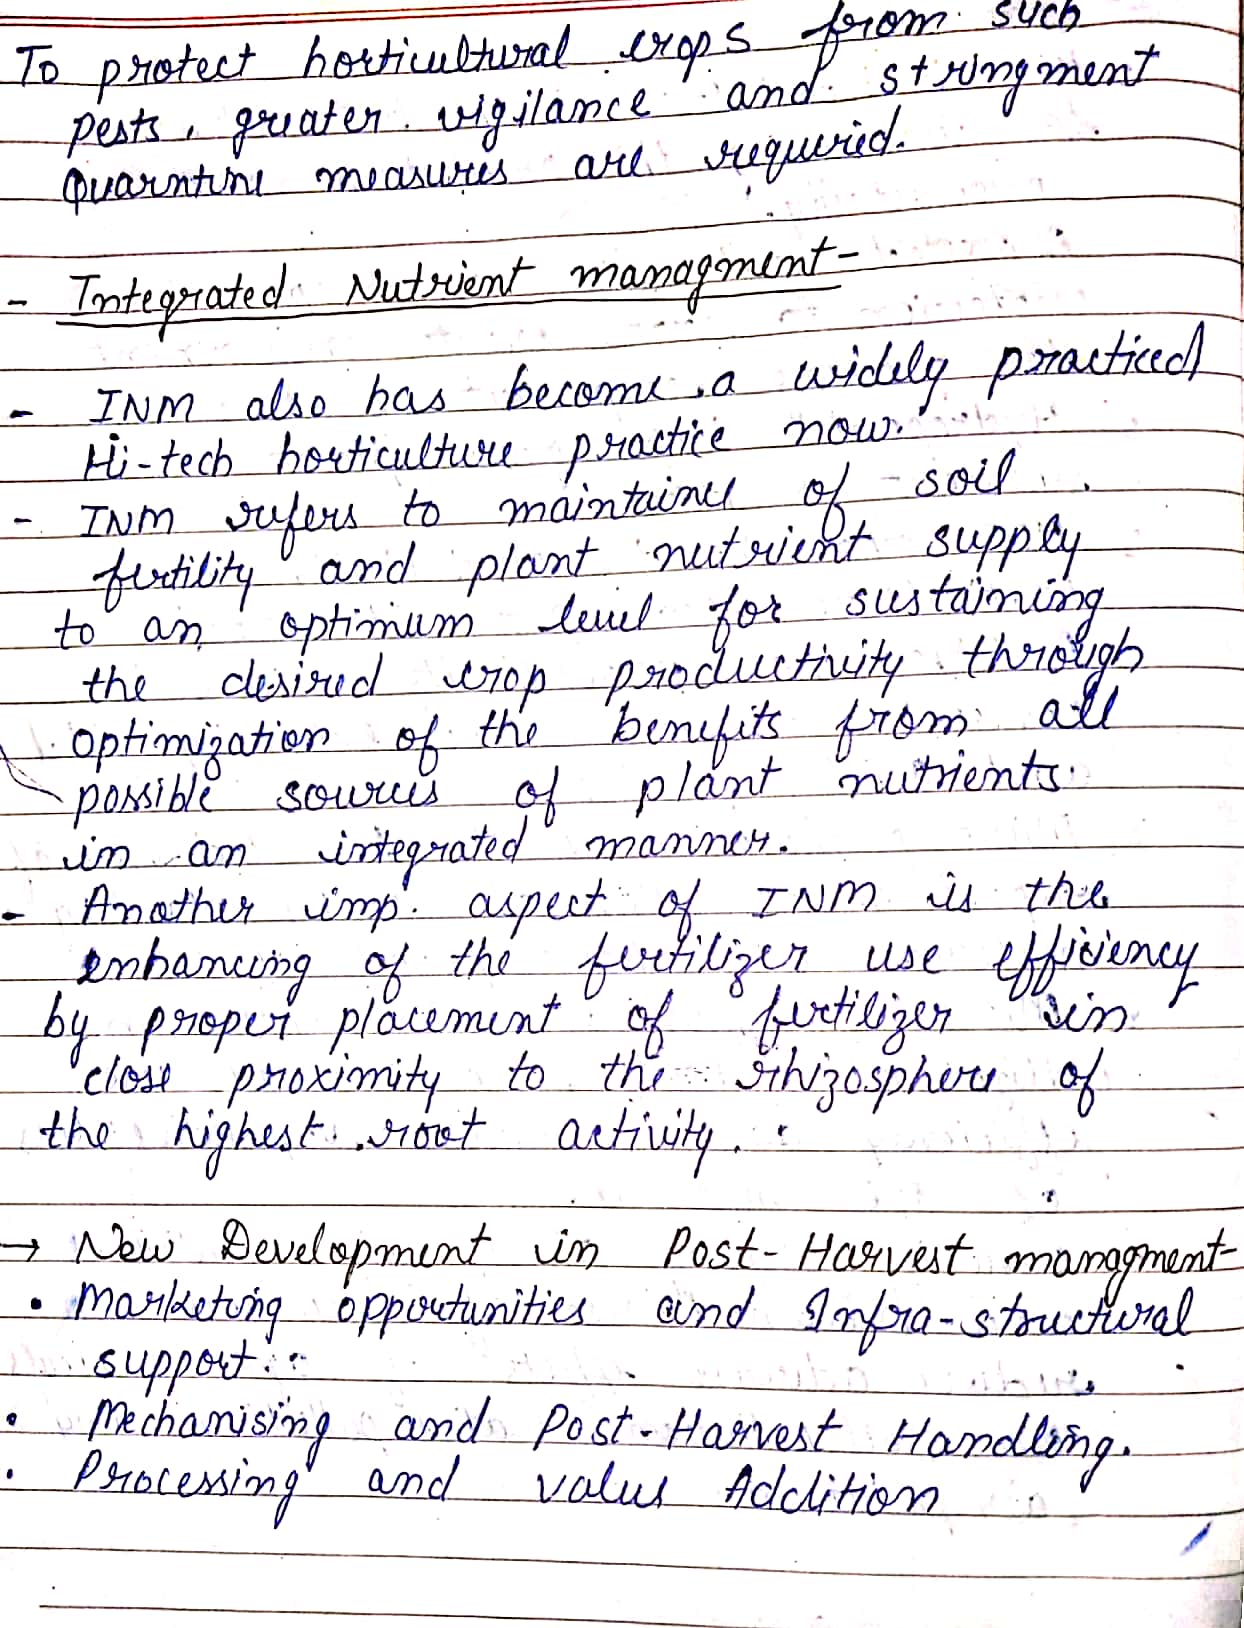 To protect horticultural crops from such
pests, greater vigilance and stringment
Quarntine measures are required.
- Integrated Nutrient managment -
- INM also has become a widely practiced
Hi-tech horticulture practice now.
- INM refers to maintaince of soil
fertility and plant nutrient supply
to an optimum level for sustaining
the desired crop productivity through
optimization of the benefits from all
possible sources of plant nutrients
in an integrated manner.
- Another imp. aspect of INM is the
enhancing of the fertilizer use efficiency
by proper placement of fertilizer in
close proximity to the rhizosphere of
the highest root activity.
→ New Development in Post-Harvest managment-
• Marketing opportunities and Infra-structural
support.
• Mechanising and Post-Harvest Handling.
• Processing and value Addition